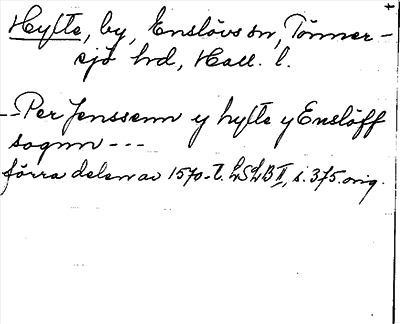 Hyfte, by, Enslövs sn, Tönner-
sjö hd, Hall. l.
--Per Jenssenn y hyfte y Enslöff
sognn ---
förra delen av 1570-t. LSLB II, s. 375. orig.